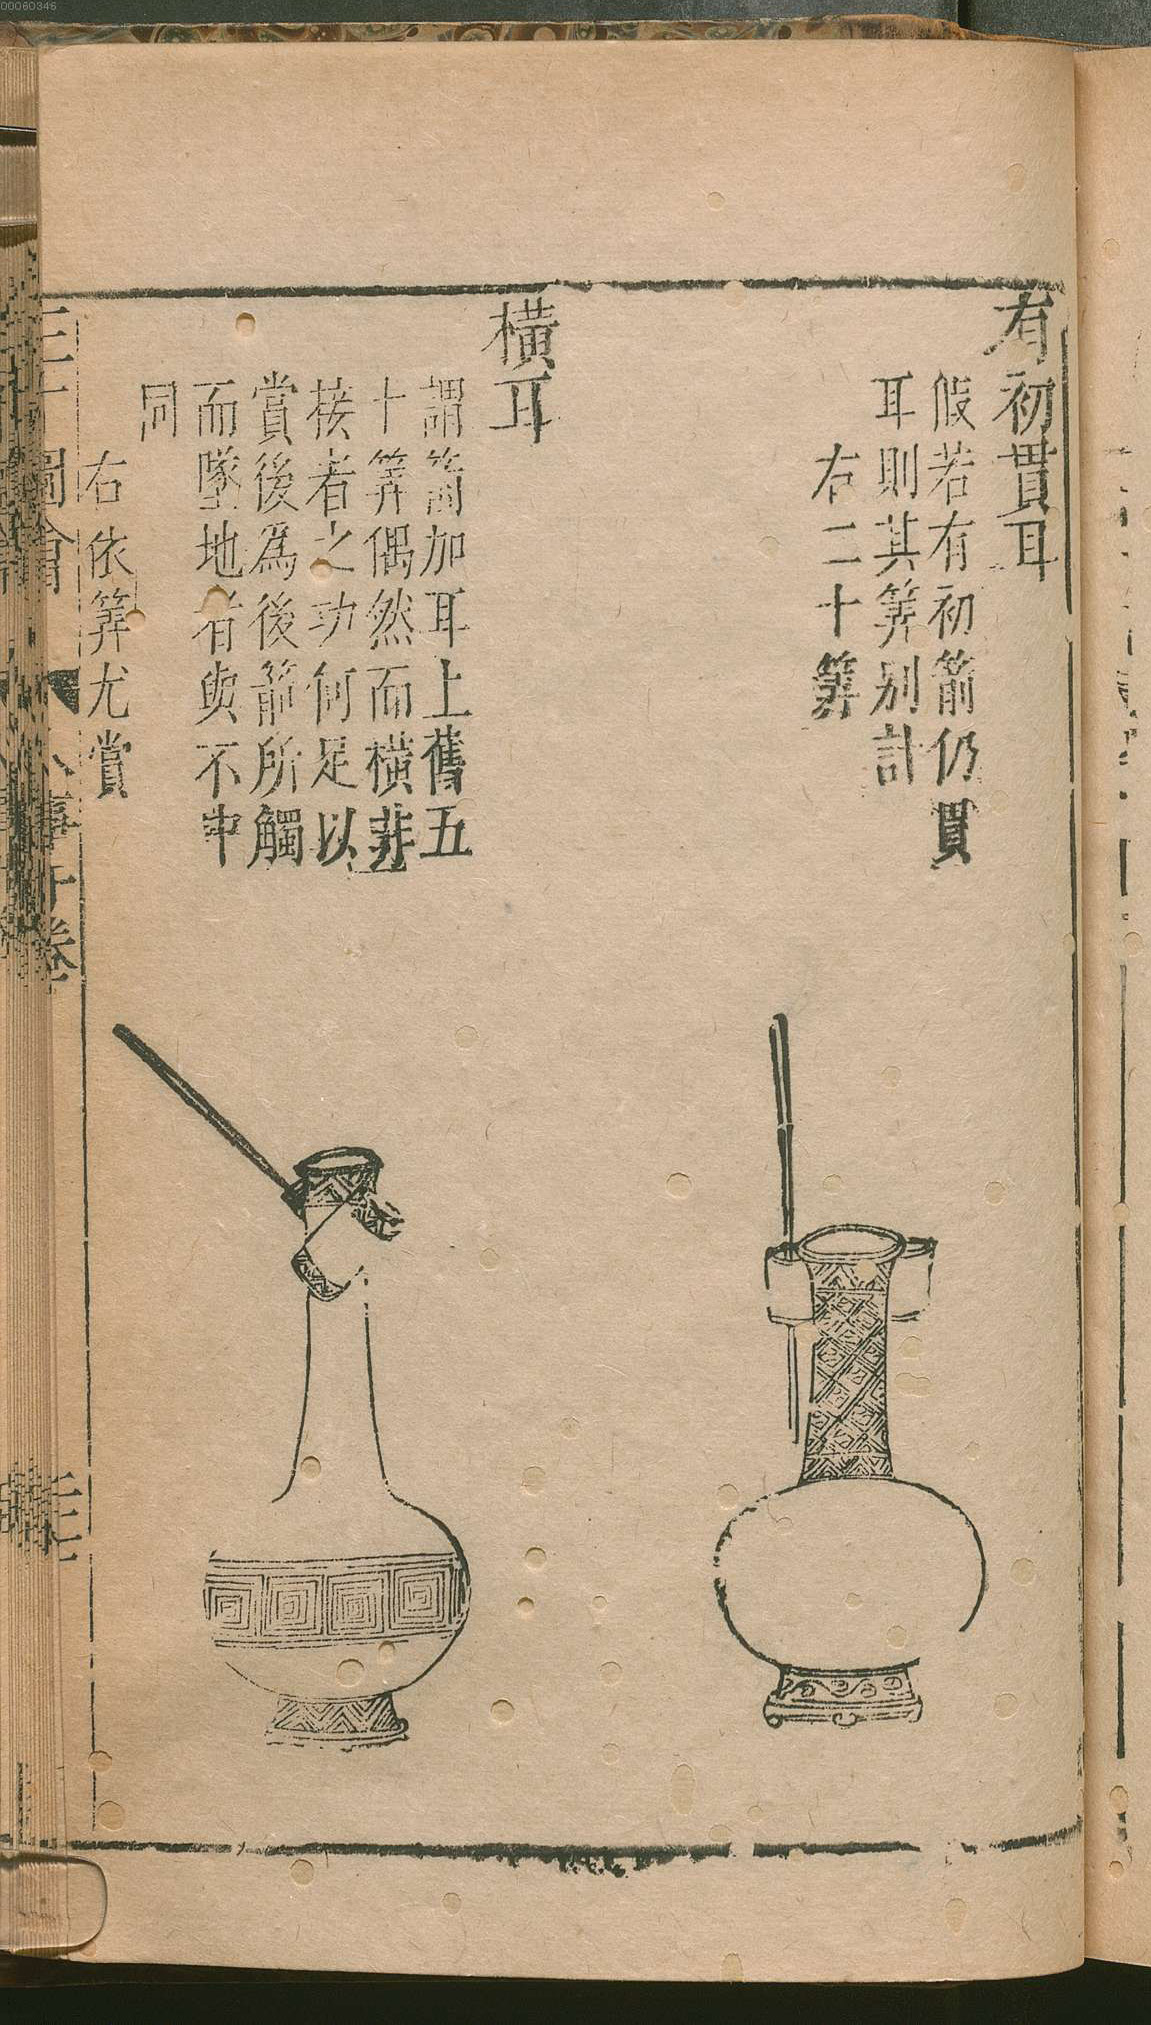 有初貫耳
假若有初箭仍貫
耳則其筭別計
右二十筭
橫耳
謂箭加耳上舊五
十筭偶然而橫非
接者之功何足以
賞後爲後箭所觸
而墜地者與不中
同
右依筭尤賞
三才圖會
人事十卷
00060346